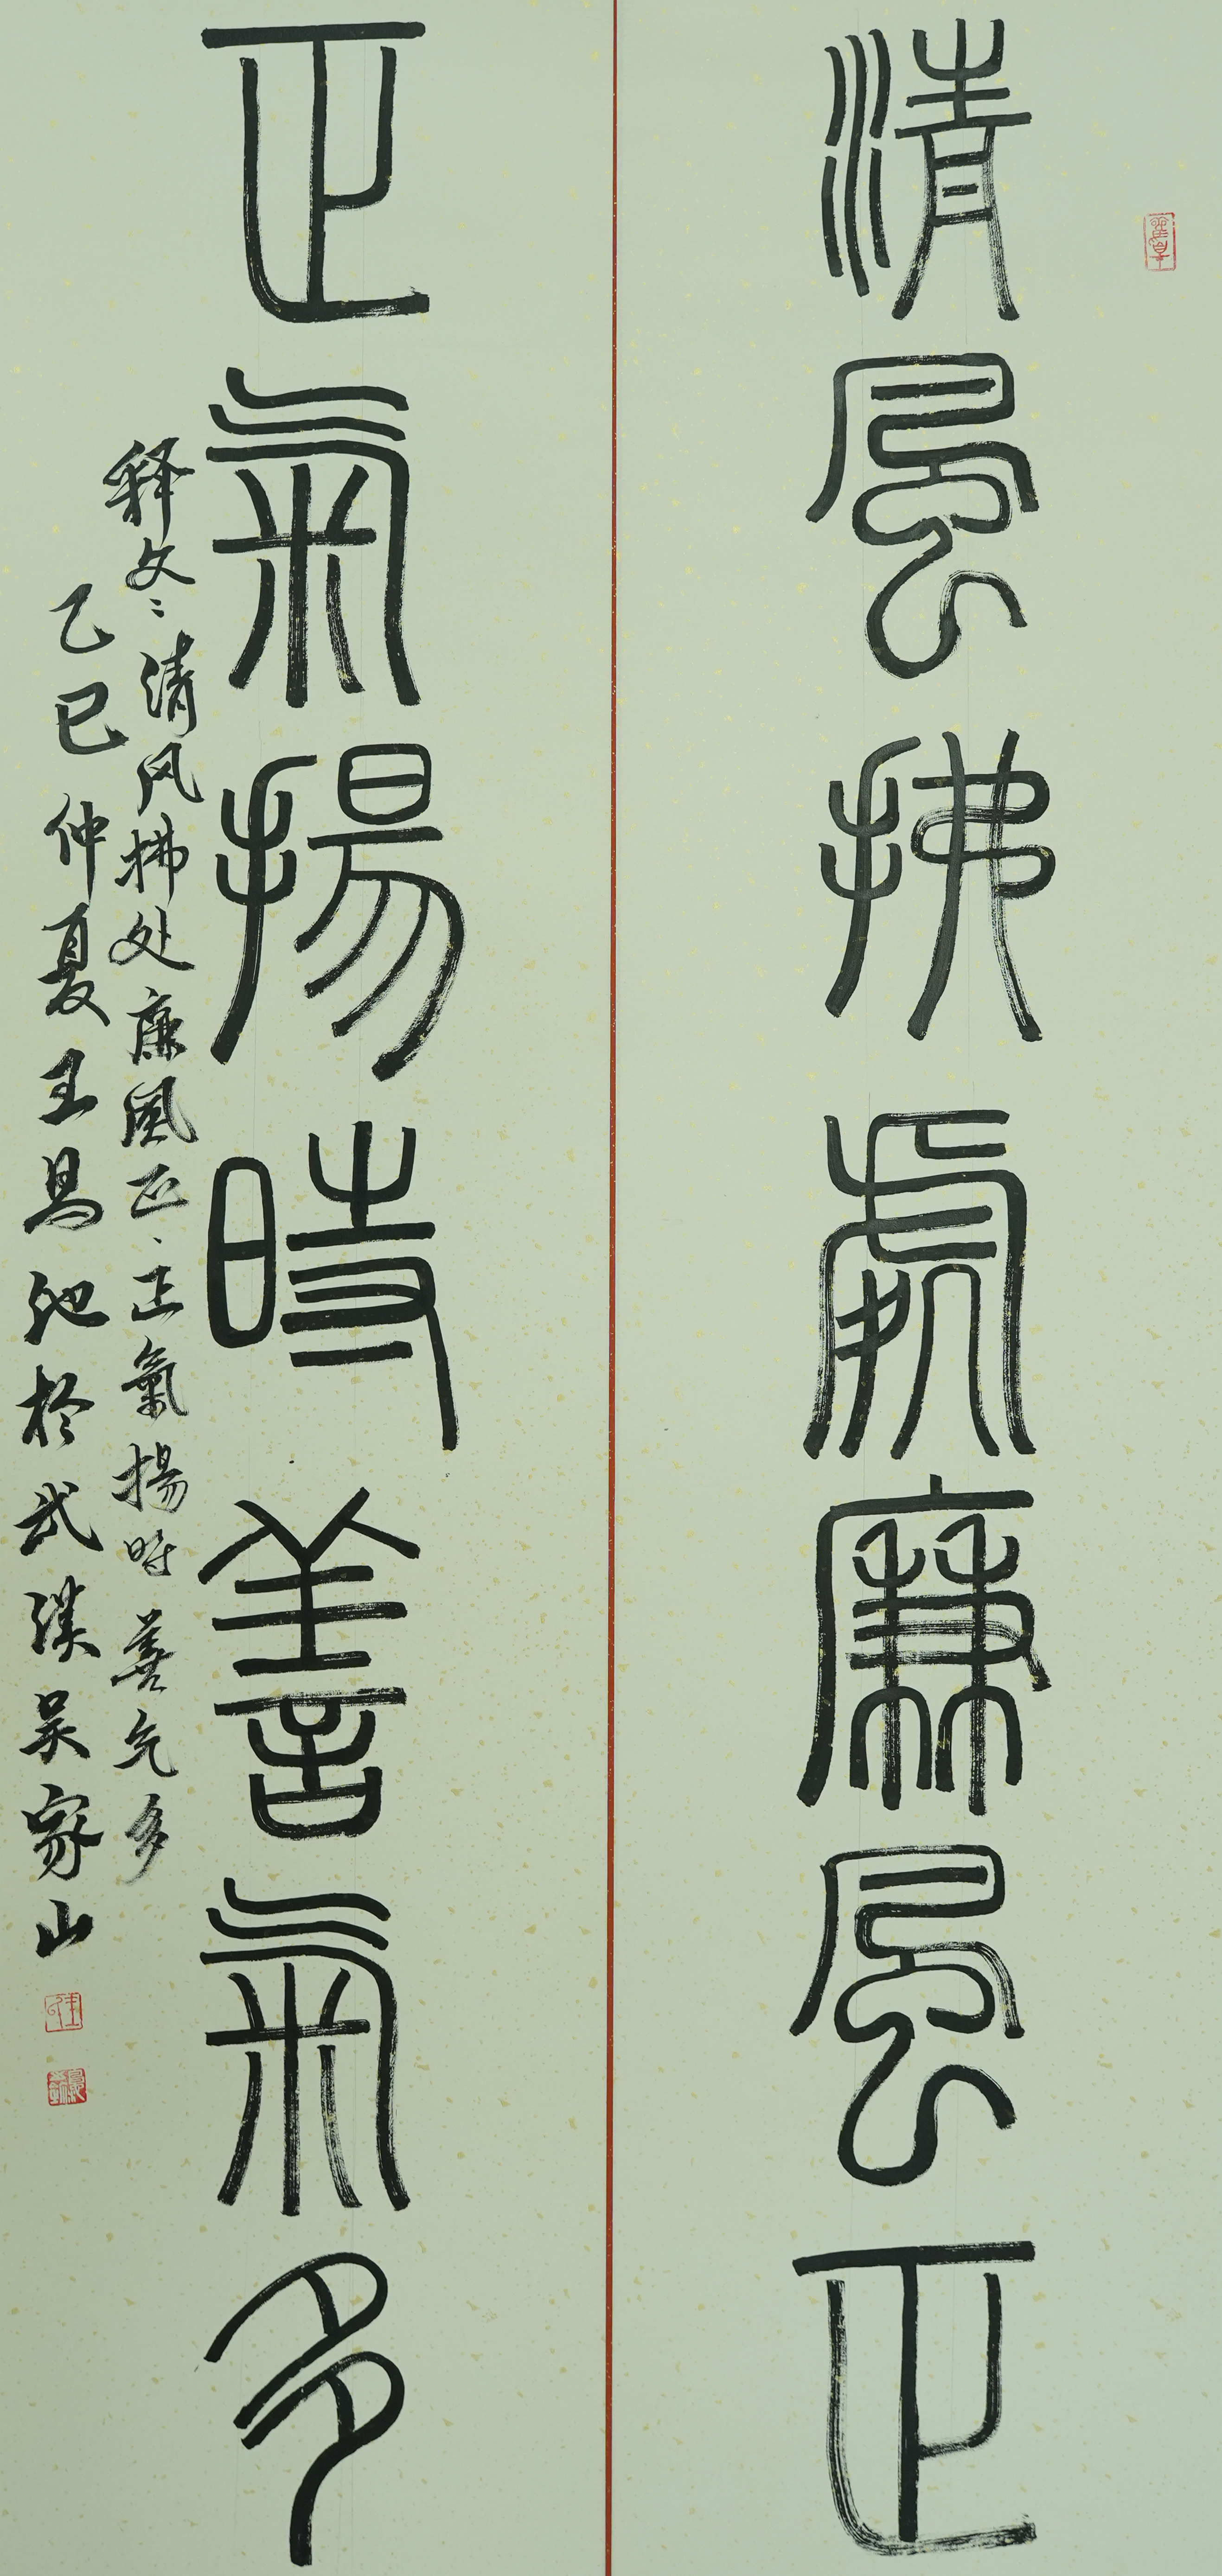 清風拂處廉風正
正氣揚時善氣多
释文：清风拂处廉風正、正氣揚時善气多
乙巳仲夏王昌池於武漢吴家山